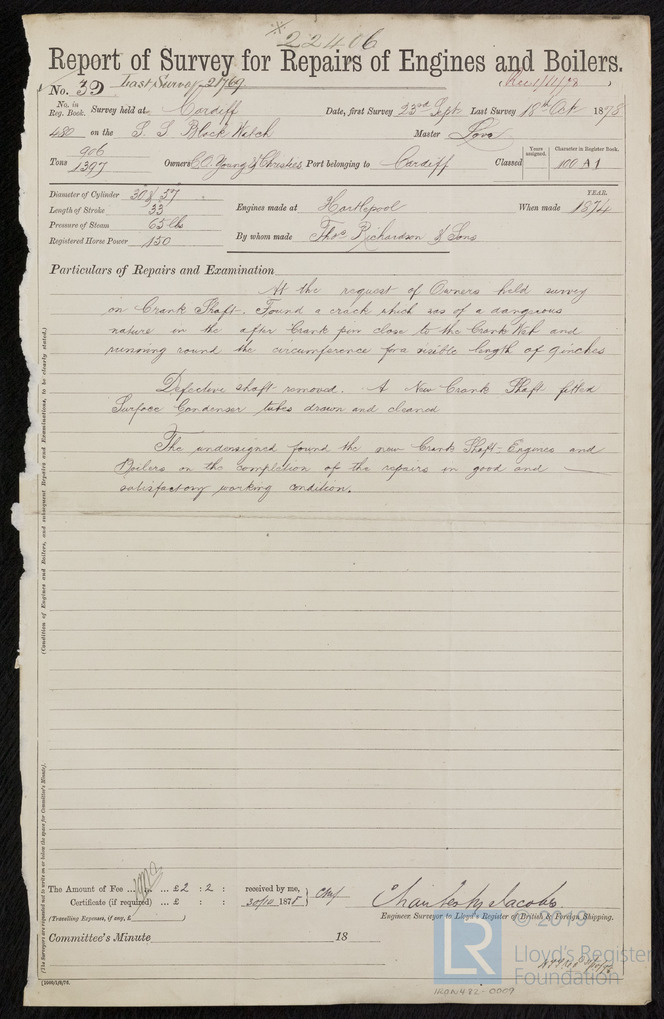 22406
Report of Survey for Repairs of Engines and Boilers.
No. 39 Last Survey 21769 (Rec 1/11/78)
No. in Reg. Book. Survey held at Cardiff Date, first Survey 23rd Sept. Last Survey 18th Oct 1878
480 on the S S Black Watch Master
Tons 906 1397 Owners C.O. Young & Christies Port belonging to Cardiff Classed Years assigned. Character in Register Book. 100 A 1
Diameter of Cylinder 30 & 57
Length of Stroke 33
Pressure of Steam 65 lbs
Registered Horse Power 150
Engines made at Hartlepool When made YEAR. 1874
By whom made Thos Richardson & Sons
Particulars of Repairs and Examination
At the request of Owners held survey
on Crank Shaft. Found a crack which was of a dangerous
nature in the after Crank pin close to the Crank Web and
running round the circumference for a visible length of 9 inches
Defective shaft removed. A New Crank Shaft fitted
Surface Condenser tubes drawn and cleaned
The undersigned found the new Crank Shaft - Engines and
Boilers on the completion of the repairs in good and
satisfactory working condition.
(Condition of Engines and Boilers, and subsequent Repairs and Examinations, to be clearly stated.)
(The Surveyors are requested not to write on or below the space for Committee's Minute.)
The Amount of Fee ... ... £2 : 2 : : received by me,
Certificate (if required) ... £ : : : 30/10 1878
(Travelling Expenses, if any, £ )
Engineer Surveyor to Lloyd's Register of British & Foreign Shipping.
Committee's Minute 18
LR © 2019
Lloyd's Register
Foundation
HRON482-0009